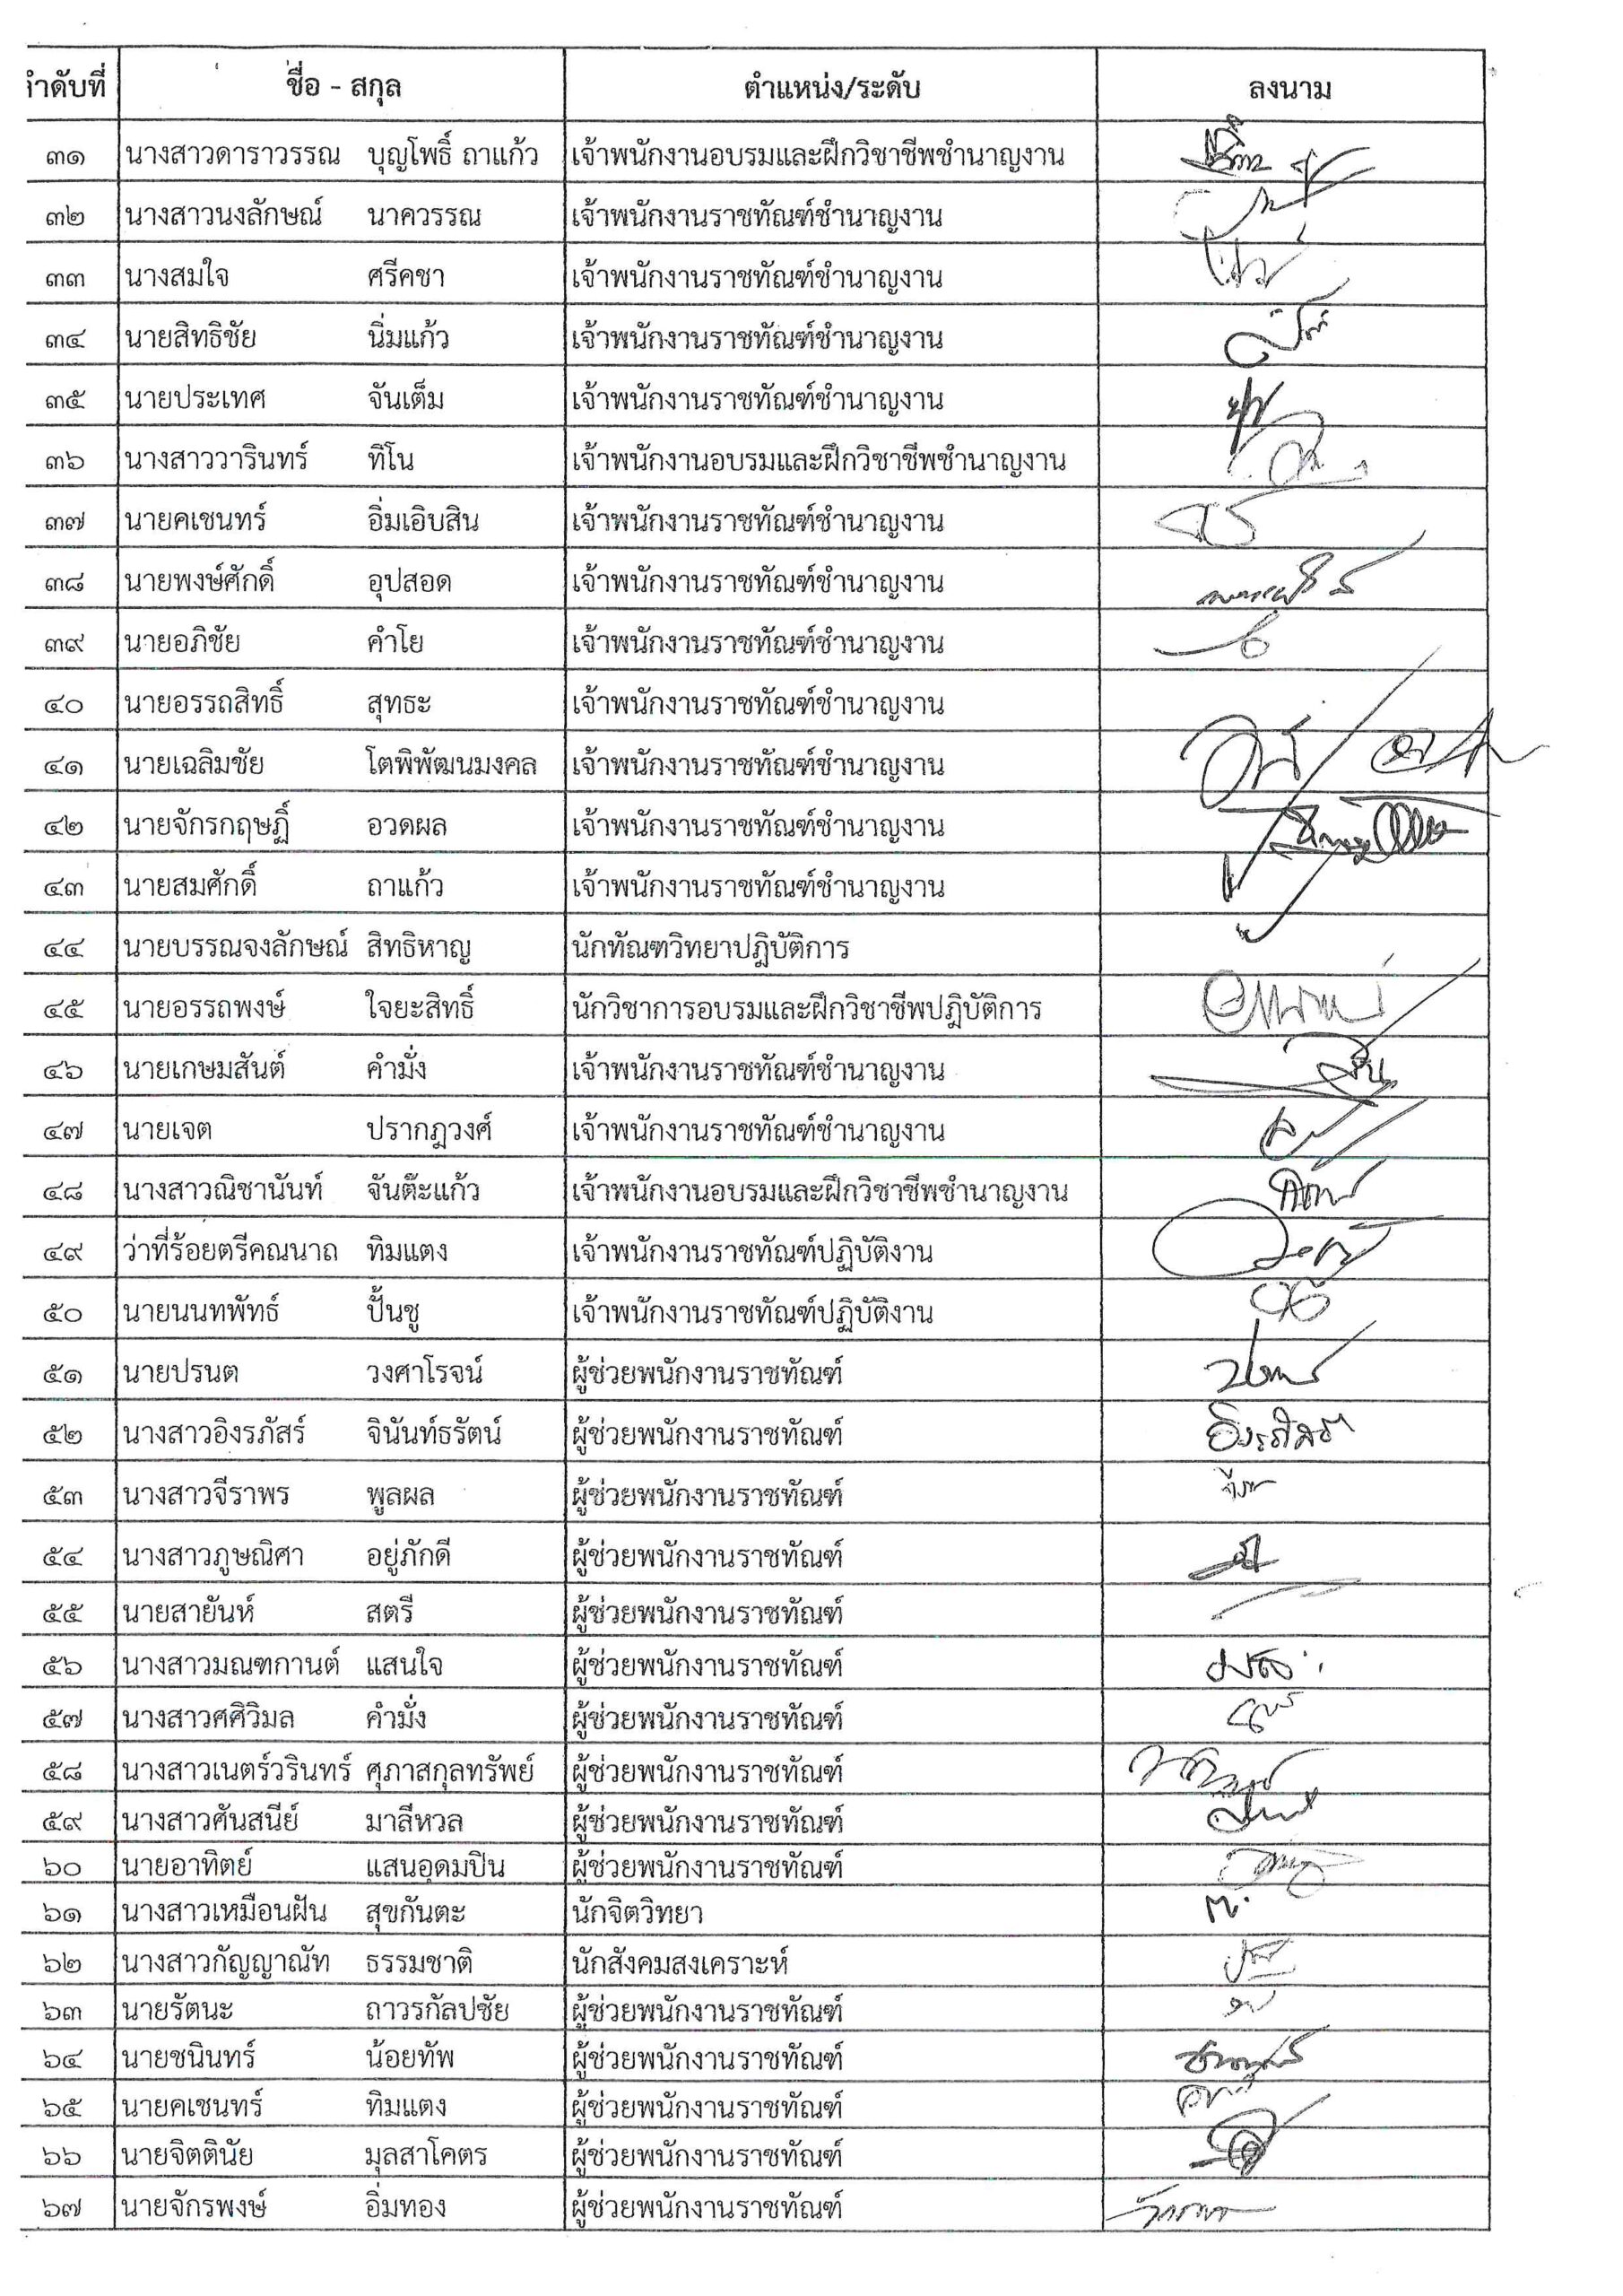 ลำดับที่ ชื่อ - สกุล ตำแหน่ง/ระดับ ลงนาม
๓๑ นางสาวดาราวรรณ บุญโพธิ์ ถาแก้ว เจ้าพนักงานอบรมและฝึกวิชาชีพชำนาญงาน
๓๒ นางสาวนงลักษณ์ นาควรรณ เจ้าพนักงานราชทัณฑ์ชำนาญงาน
๓๓ นางสมใจ ศรีคชา เจ้าพนักงานราชทัณฑ์ชำนาญงาน
๓๔ นายสิทธิชัย นิ่มแก้ว เจ้าพนักงานราชทัณฑ์ชำนาญงาน
๓๕ นายประเทศ จันเต็ม เจ้าพนักงานราชทัณฑ์ชำนาญงาน
๓๖ นางสาววารินทร์ ทิโน เจ้าพนักงานอบรมและฝึกวิชาชีพชำนาญงาน
๓๗ นายคเชนทร์ อิ่มเอิบสิน เจ้าพนักงานราชทัณฑ์ชำนาญงาน
๓๘ นายพงษ์ศักดิ์ อุปสอด เจ้าพนักงานราชทัณฑ์ชำนาญงาน
๓๙ นายอภิชัย คำโย เจ้าพนักงานราชทัณฑ์ชำนาญงาน
๔๐ นายอรรถสิทธิ์ สุทธะ เจ้าพนักงานราชทัณฑ์ชำนาญงาน
๔๑ นายเฉลิมชัย โตพิพัฒนมงคล เจ้าพนักงานราชทัณฑ์ชำนาญงาน
๔๒ นายจักรกฤษฏิ์ อวดผล เจ้าพนักงานราชทัณฑ์ชำนาญงาน
๔๓ นายสมศักดิ์ ถาแก้ว เจ้าพนักงานราชทัณฑ์ชำนาญงาน
๔๔ นายบรรณจงลักษณ์ สิทธิหาญ นักทัณฑวิทยาปฏิบัติการ
๔๕ นายอรรถพงษ์ ใจยะสิทธิ์ นักวิชาการอบรมและฝึกวิชาชีพปฏิบัติการ
๔๖ นายเกษมสันต์ คำมั่ง เจ้าพนักงานราชทัณฑ์ชำนาญงาน
๔๗ นายเจต ปรากฏวงศ์ เจ้าพนักงานราชทัณฑ์ชำนาญงาน
๔๘ นางสาวณิชานันท์ จันต๊ะแก้ว เจ้าพนักงานอบรมและฝึกวิชาชีพชำนาญงาน
๔๙ ว่าที่ร้อยตรีคณนาถ ทิมแตง เจ้าพนักงานราชทัณฑ์ปฏิบัติงาน
๕๐ นายนนทพัทธ์ ปั้นชู เจ้าพนักงานราชทัณฑ์ปฏิบัติงาน
๕๑ นายปรนต วงศาโรจน์ ผู้ช่วยพนักงานราชทัณฑ์
๕๒ นางสาวอิงรภัสร์ จินันท์ธรัตน์ ผู้ช่วยพนักงานราชทัณฑ์ อิงรภัสร์
๕๓ นางสาวจีราพร พูลผล ผู้ช่วยพนักงานราชทัณฑ์
๕๔ นางสาวภูษณิศา อยู่ภักดี ผู้ช่วยพนักงานราชทัณฑ์
๕๕ นายสายันห์ สตรี ผู้ช่วยพนักงานราชทัณฑ์
๕๖ นางสาวมณฑกานต์ แสนใจ ผู้ช่วยพนักงานราชทัณฑ์
๕๗ นางสาวศศิวิมล คำมั่ง ผู้ช่วยพนักงานราชทัณฑ์
๕๘ นางสาวเนตร์วรินทร์ ศุภาสกุลทรัพย์ ผู้ช่วยพนักงานราชทัณฑ์
๕๙ นางสาวศันสนีย์ มาลีหวล ผู้ช่วยพนักงานราชทัณฑ์
๖๐ นายอาทิตย์ แสนอุดมปิน ผู้ช่วยพนักงานราชทัณฑ์
๖๑ นางสาวเหมือนฝัน สุขกันตะ นักจิตวิทยา
๖๒ นางสาวกัญญาณัท ธรรมชาติ นักสังคมสงเคราะห์
๖๓ นายรัตนะ ถาวรกัลปชัย ผู้ช่วยพนักงานราชทัณฑ์
๖๔ นายชนินทร์ น้อยทัพ ผู้ช่วยพนักงานราชทัณฑ์
๖๕ นายคเชนทร์ ทิมแตง ผู้ช่วยพนักงานราชทัณฑ์
๖๖ นายจิตตินัย มุลสาโคตร ผู้ช่วยพนักงานราชทัณฑ์
๖๗ นายจักรพงษ์ อิ่มทอง ผู้ช่วยพนักงานราชทัณฑ์